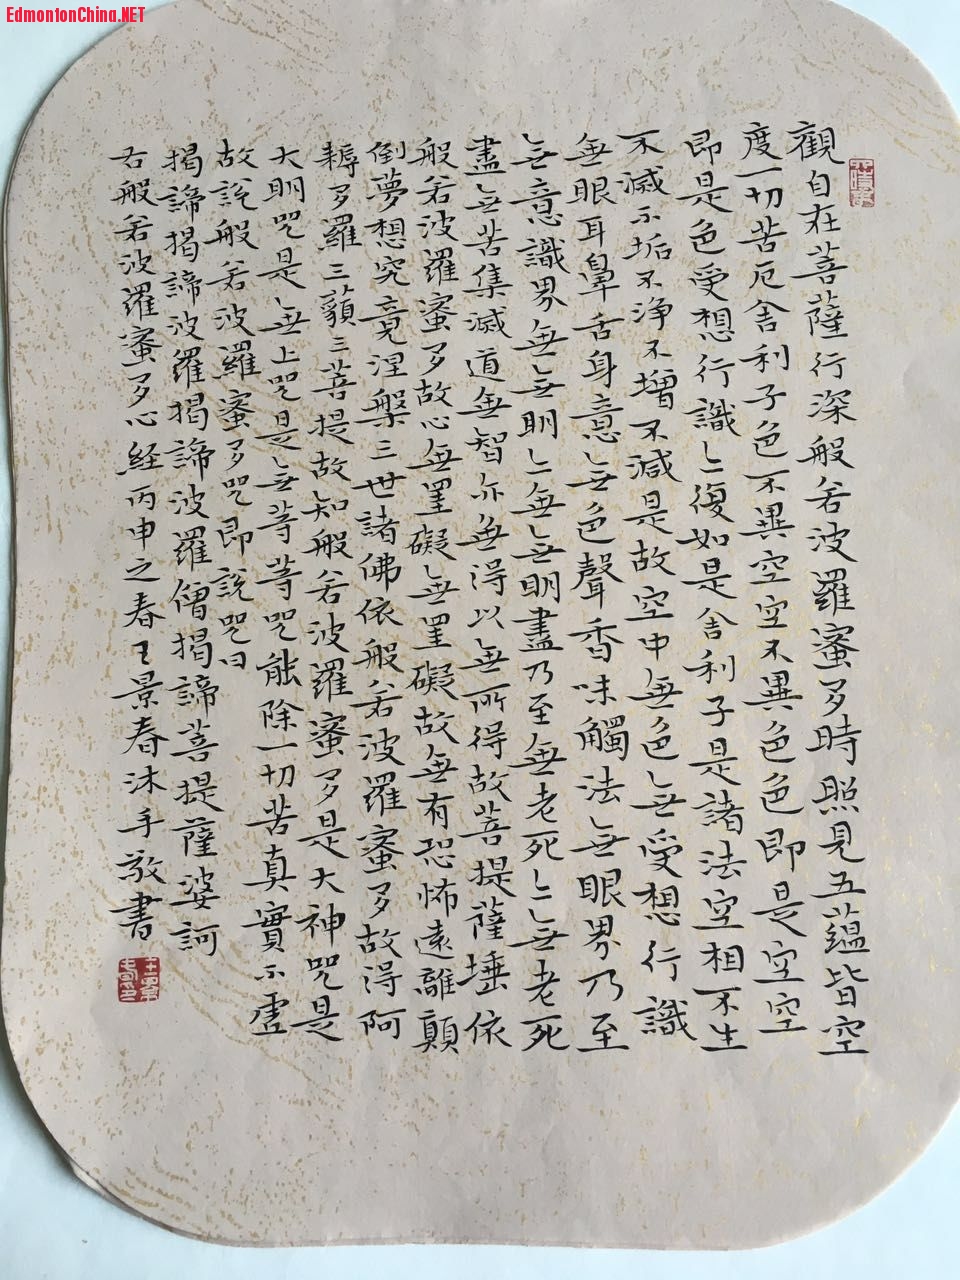 EdmontonChina.NET
觀自在菩薩行深般若波羅蜜多時照見五蘊皆空
度一切苦厄舍利子色不異空空不異色色即是空空
即是色受想行識亦復如是舍利子是諸法空相不生
不滅不垢不淨不增不減是故空中無色無受想行識
無眼耳鼻舌身意無色聲香味觸法無眼界乃至
無意識界無無明亦無無明盡乃至無老死亦無老死
盡無苦集滅道無智亦無得以無所得故菩提薩埵依
般若波羅蜜多故心無罣礙無罣礙故無有恐怖遠離顛
倒夢想究竟涅槃三世諸佛依般若波羅蜜多故得阿
耨多羅三藐三菩提故知般若波羅蜜多是大神咒是
大明咒是無上咒是無等等咒能除一切苦真實不虛
故說般若波羅蜜多咒即說咒曰
揭諦揭諦波羅揭諦波羅僧揭諦菩提薩婆訶
右般若波羅蜜多心経丙申之春王景春沐手敬書